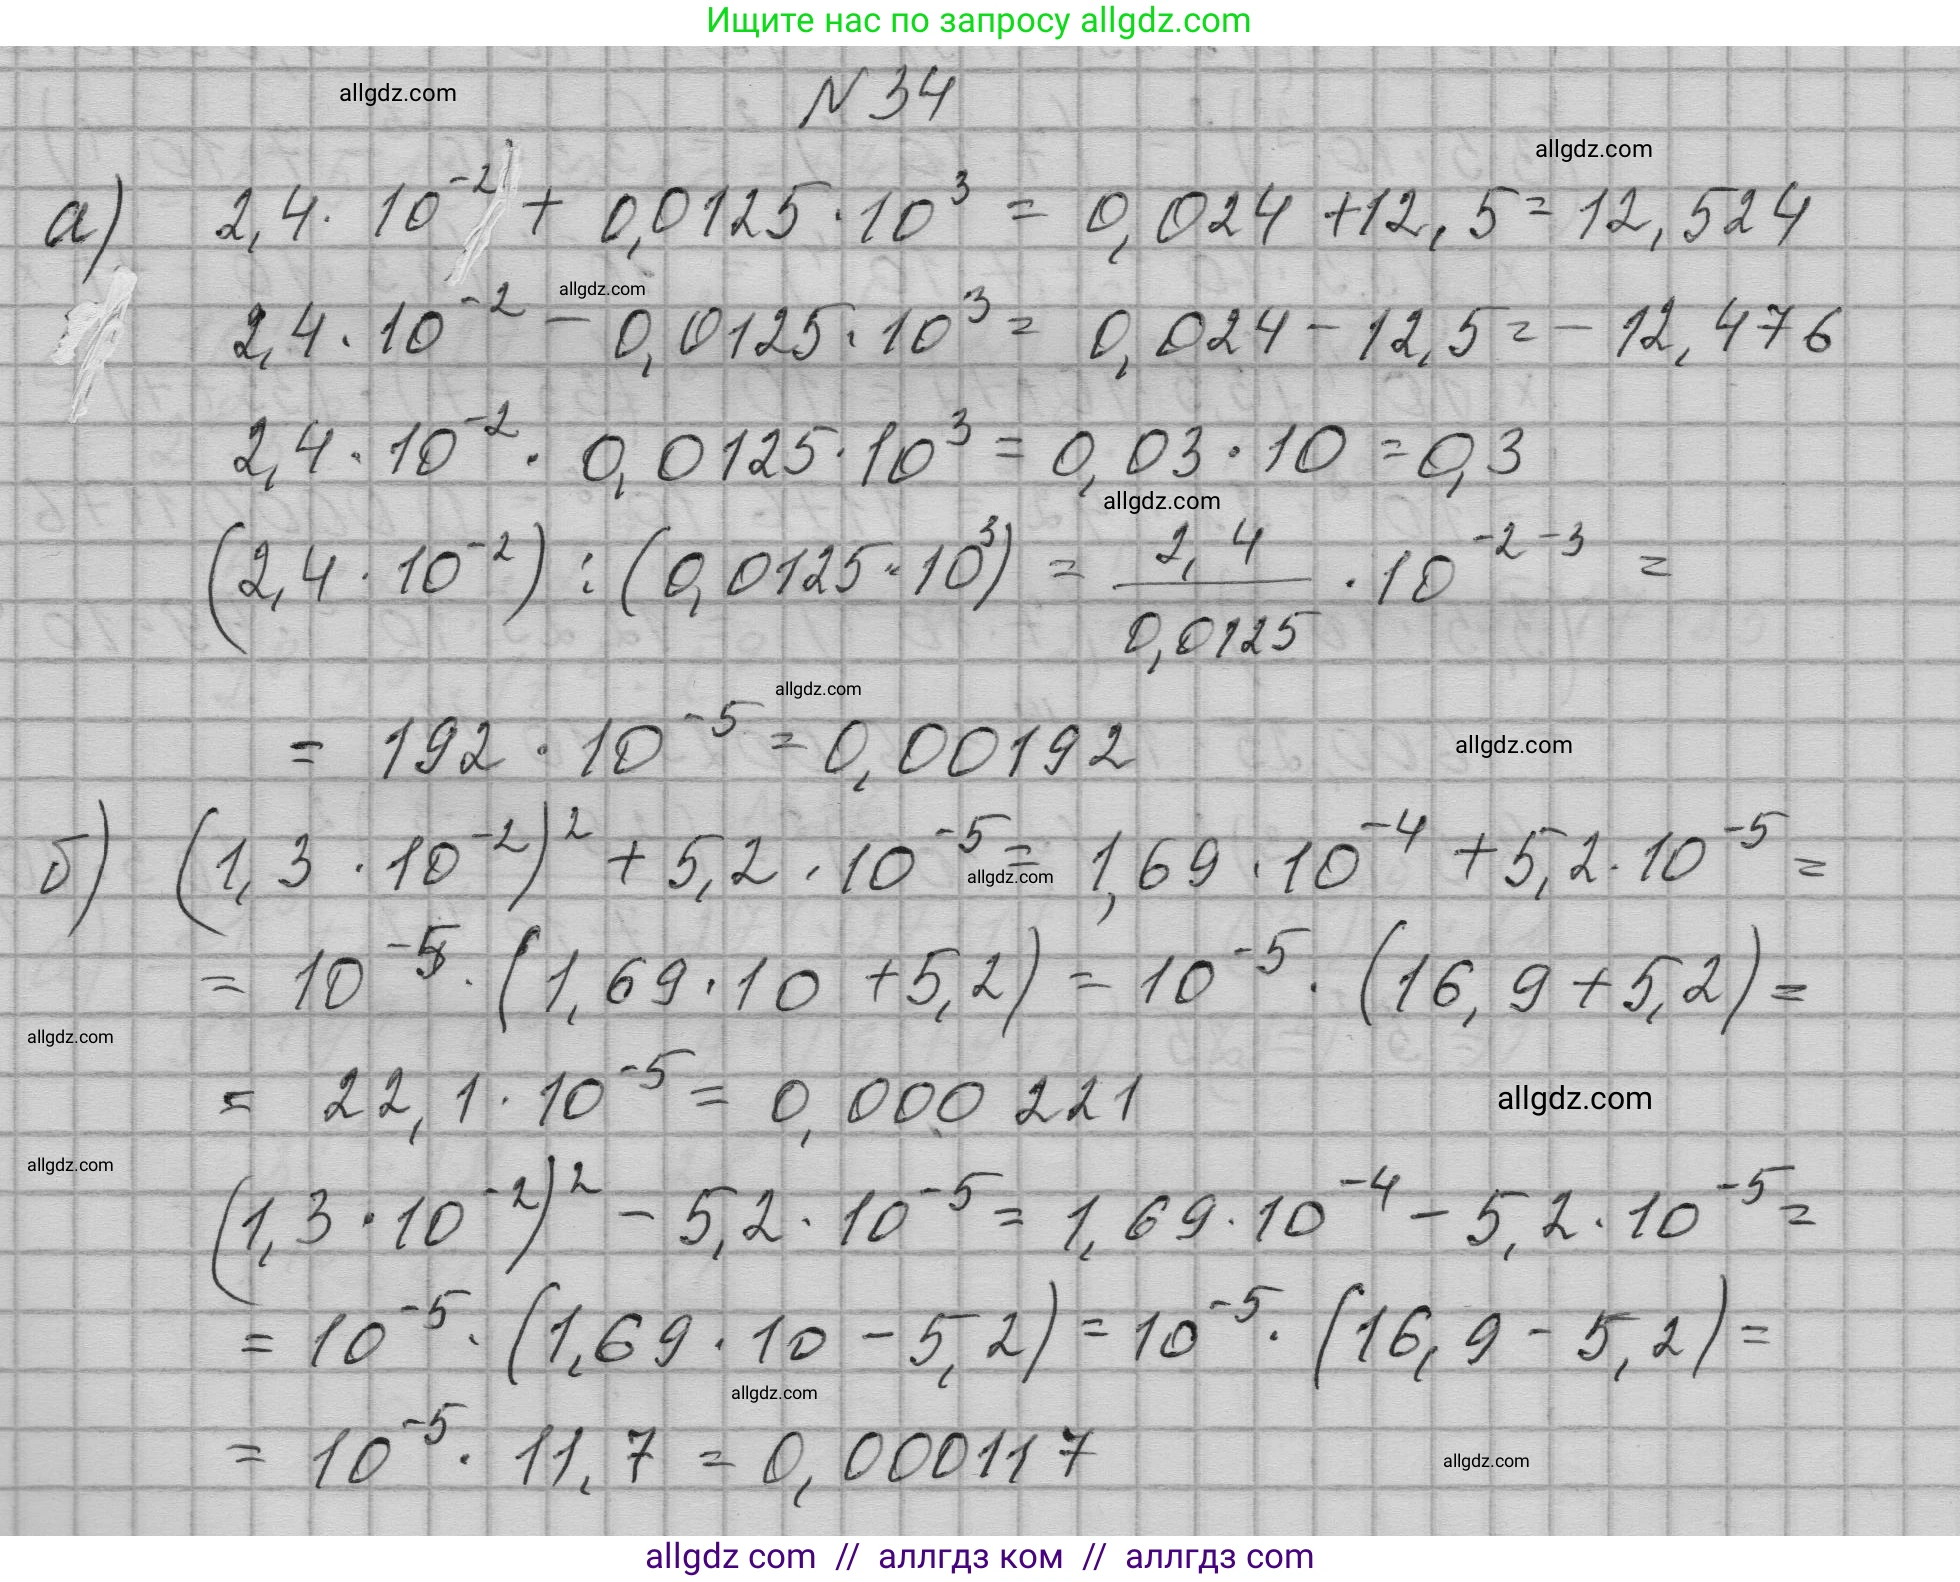 Ищите нас по запросу allgdz.com
allgdz.com
N 34
allgdz.com
а) 2,4 · 10⁻² + 0,0125 · 10³ = 0,024 + 12,5 = 12,524
allgdz.com
2,4 · 10⁻² − 0,0125 · 10³ = 0,024 − 12,5 = − 12,476
2,4 · 10⁻² · 0,0125 · 10³ = 0,03 · 10 = 0,3
allgdz.com
(2,4 · 10⁻²) : (0,0125 · 10³) = 2,4/0,0125 · 10⁻²⁻³ =
allgdz.com
= 192 · 10⁻⁵ = 0,00192
allgdz.com
б) (1,3 · 10⁻²)² + 5,2 · 10⁻⁵ = 1,69 · 10⁻⁴ + 5,2 · 10⁻⁵ =
allgdz.com
= 10⁻⁵ · (1,69 · 10 + 5,2) = 10⁻⁵ · (16,9 + 5,2) =
allgdz.com
= 22,1 · 10⁻⁵ = 0,000221
allgdz.com
allgdz.com
(1,3 · 10⁻²)² − 5,2 · 10⁻⁵ = 1,69 · 10⁻⁴ − 5,2 · 10⁻⁵ =
= 10⁻⁵ · (1,69 · 10 − 5,2) = 10⁻⁵ · (16,9 − 5,2) =
allgdz.com
= 10⁻⁵ · 11,7 = 0,000117
allgdz.com
allgdz com // аллгдз ком // аллгдз com